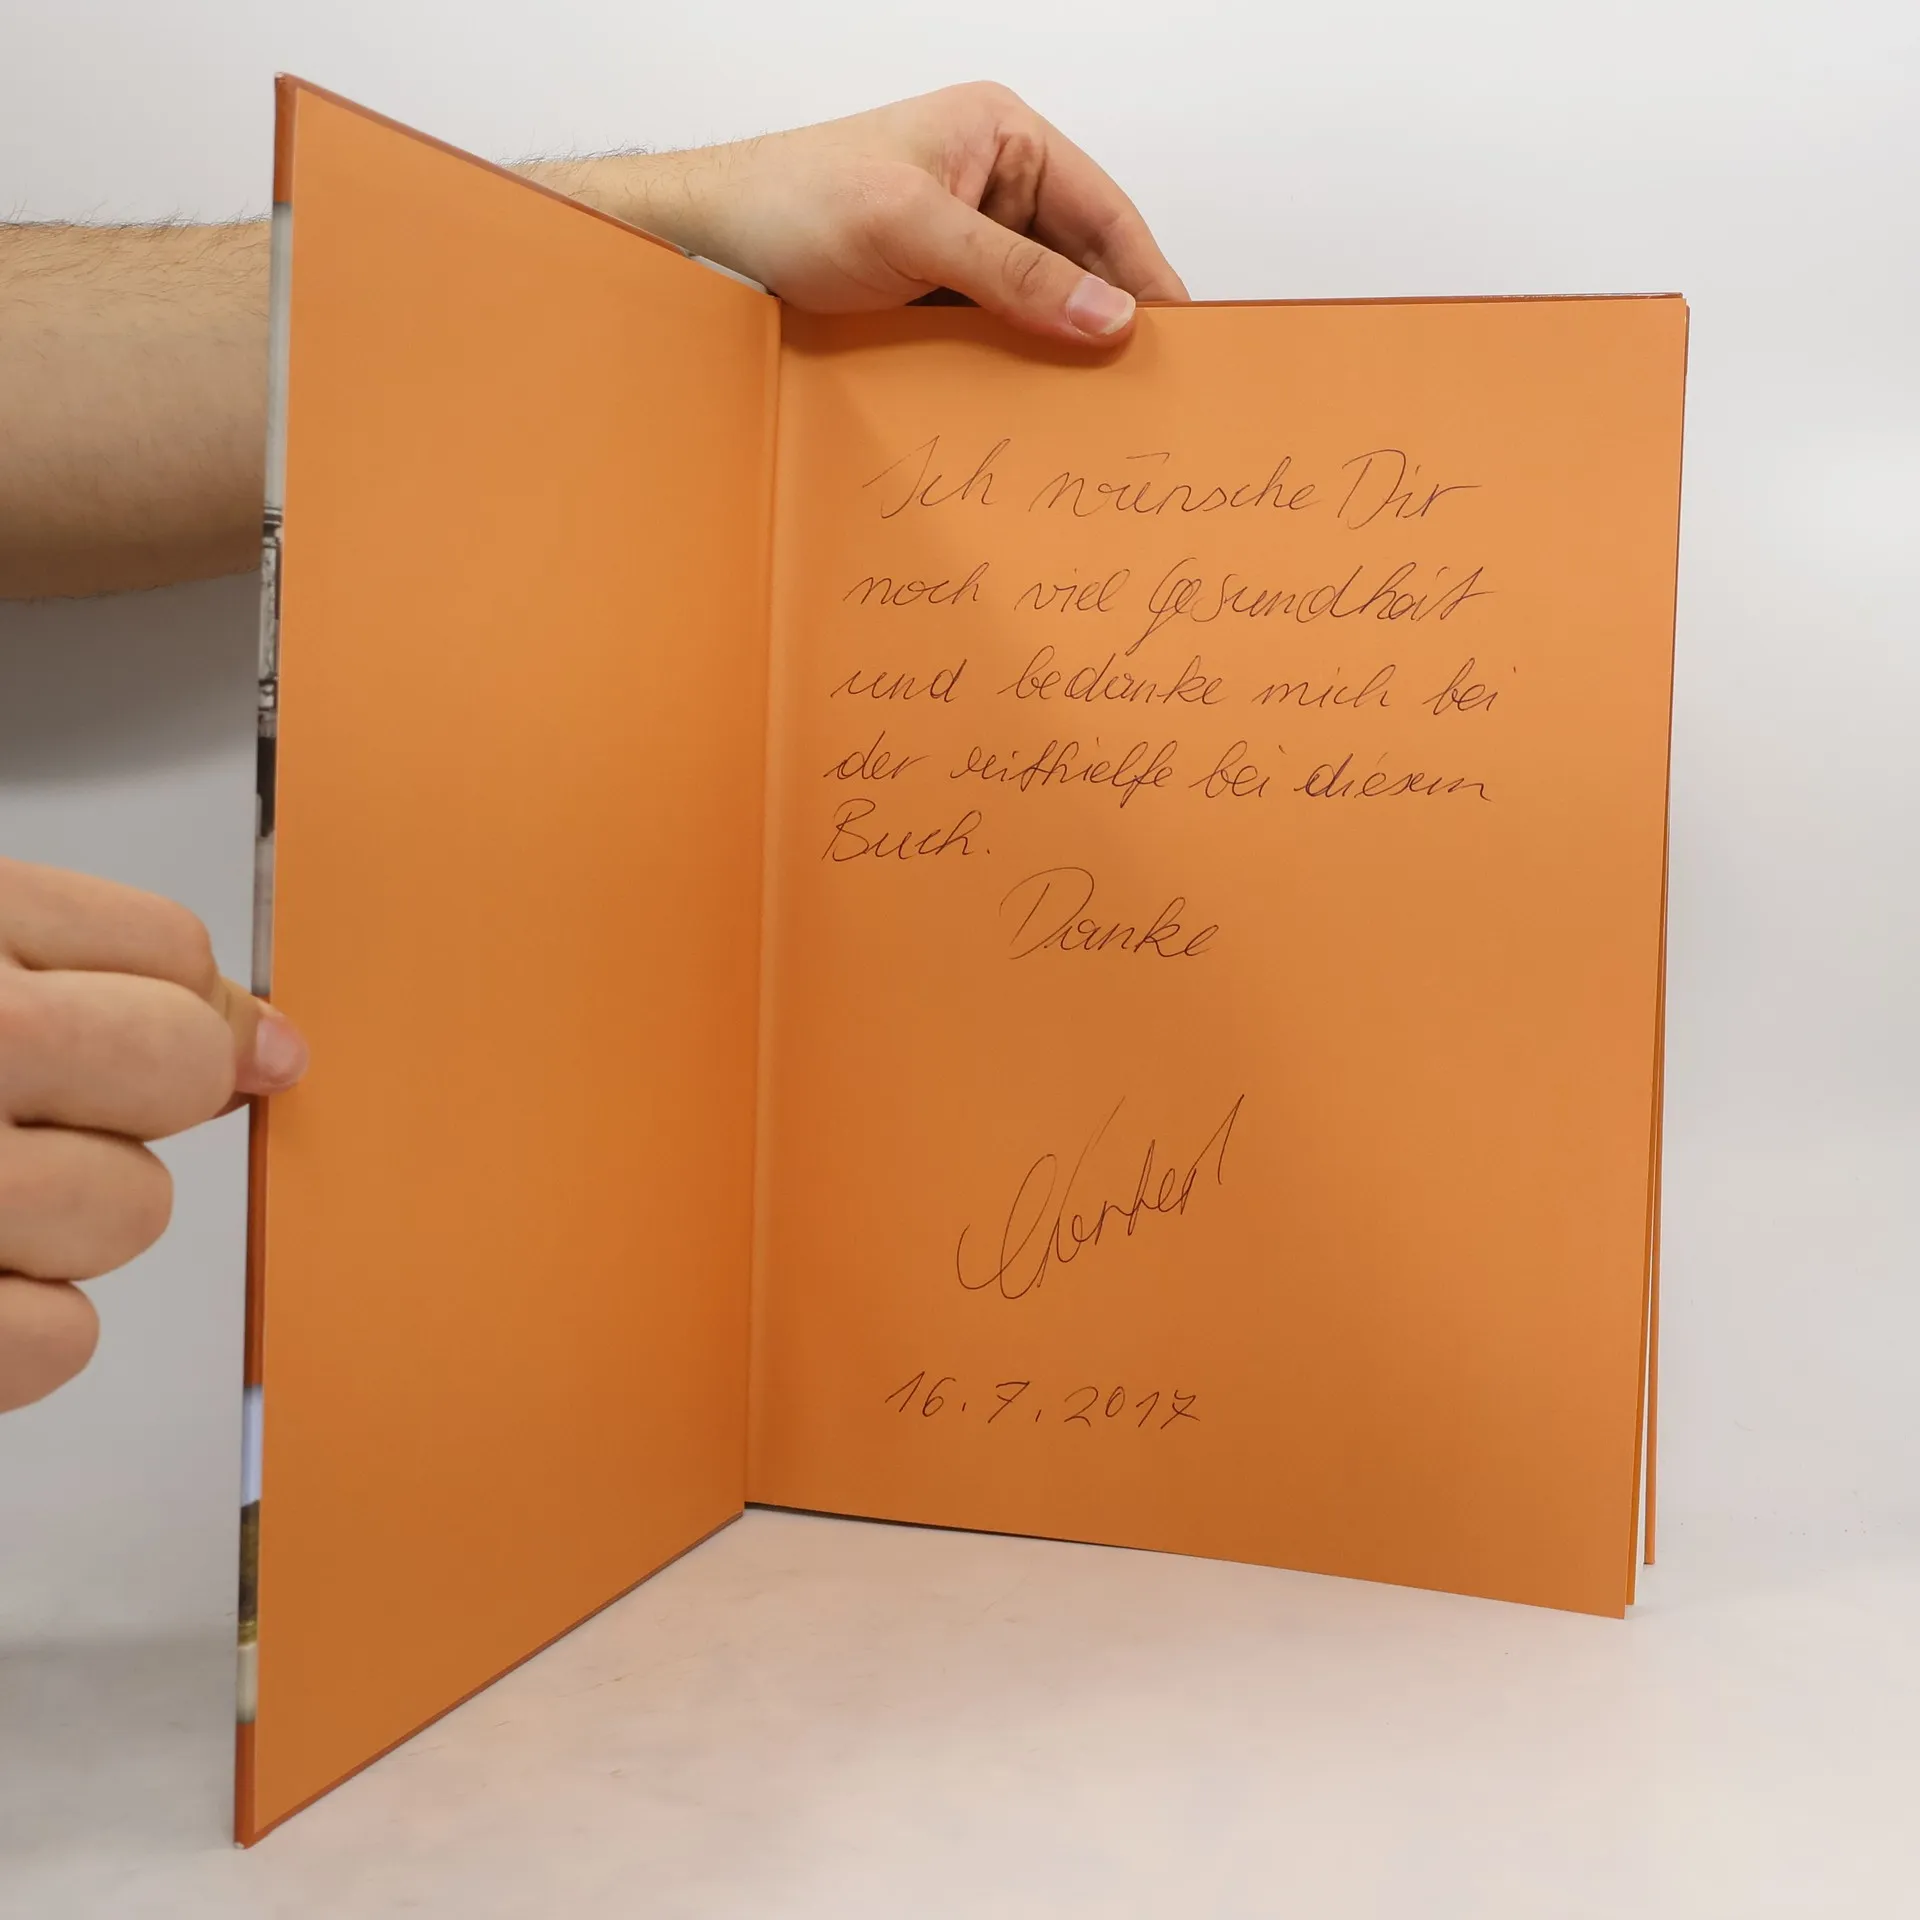 Ich wünsche Dir
noch viel Gesundheit
und bedanke mich bei
der bei diesem
Buch.
Danke
Norbert
16.7.2017